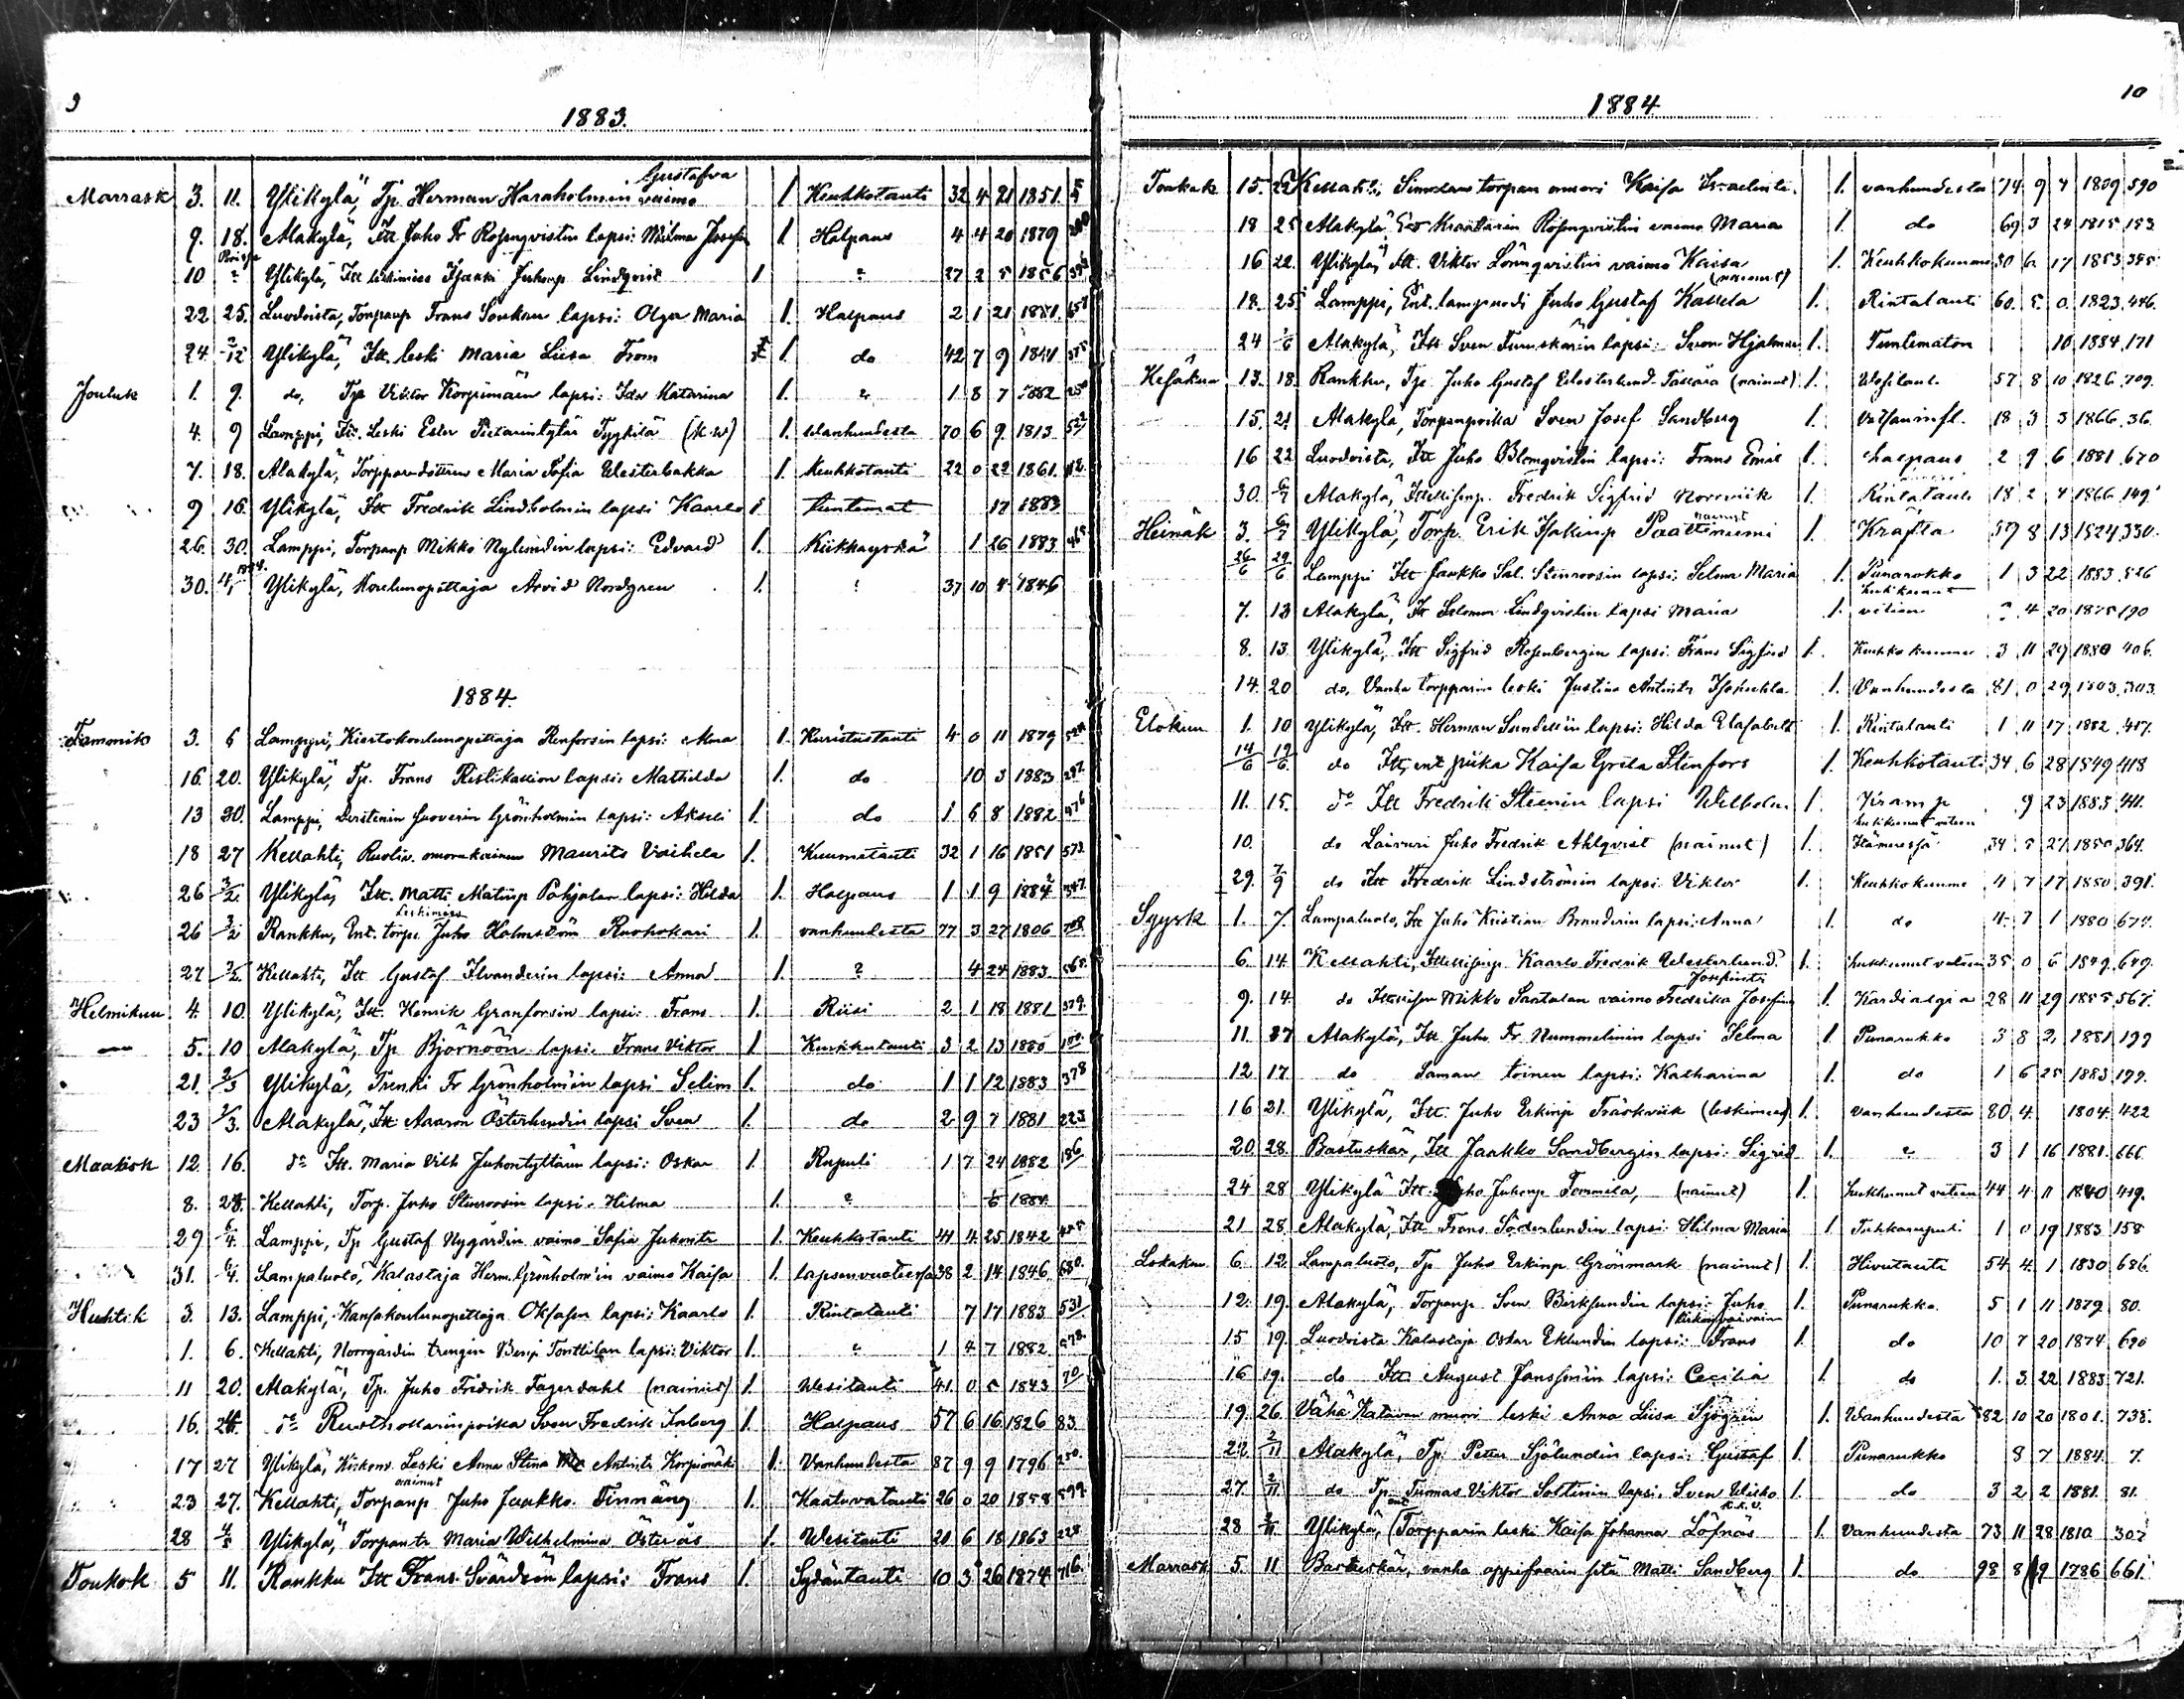 9
1883.
Marrask 3. 11. Ylikylä, Tp. Herman Haraholmin vaimo Gustafva 1 Keuhkotauti 32 4 21 1851.
9. 18. Alakylä, Itt Juho Fr Rosenqvistin lapsi: Wilma Josefin 1 Halpaus 4 4 20 1879
10 " Ylikylä, Itt leskimies Isaaki Juhonp Lindqvist 1 " 27 2 5 1856
22 25. Luodoista, Torpanp Frans Soukan lapsi: Olga Maria 1. Halpaus 2 1 21 1881.
24. 2/12 Ylikylä, Itt. leski Maria Liisa From 1. do 42 7 9 1841
Jouluk 1. 9. do, Tp Viktor Korpimäen lapsi: Ida Katarina 1. " 1 8 7 1882
4. 9 Lamppi, Itt. Leski Ester Pietarintytär Tyykilä 1. Wanhuudesta 70 6 9. 1813
7. 18. Alakylä, Torpparodotteren Maria Sofia Westerbakka 1. Keuhkotauti 22 0 22 1861.
9 16. Ylikylä, Itt Fredrik Lindholmin lapsi Kaarlo 1 tuntemat 17 1883
26. 30. Lamppi, Torpanp Mikko Nylundin lapsi: Edvard 1. Kiikkayskä 1 26 1883
30. Ylikylä, Koulunopettaja Arvid Nordgren 1. " 37 10 4 1846
1884.
Tammik 3. 6 Lamppi, Kiertokoulunopettaja Renforsin lapsi: Alma 1. Kuristustauti 4 0 11 1879
16. 20. Ylikylä, Tp. Frans Ristikassion lapsi: Mathilda 1. do 10 3 1883
13 30. Lamppi, Grönholmin lapsi: Akseli 1. do 1 6 8 1882 476
18 27 Kellahti, Ruoliv. Maurits Vaihela 1. Kuumetauti 32 1 16 1851 573
26 3/2. Ylikylä, Itt. Matti Matinp Pohjolan lapsi: Hilda 1. Halpaus 1 1 9 1884 347.
26 3/2 Rankku, Ent. torp. Leskimies Juho Holmström Ruohokari 1. vanhuudesta 77 3 27 1806 708.
27 3/2 Kellahti, Itt Gustaf Ilvanderin lapsi: Anna 1. " 4 24 1883. 568.
Helmikuu 4 10. Ylikylä, Itt. Henrik Granforsin lapsi: Frans 1. Riisi 2 1 18 1881 379.
5. 10 Alakylä, Tp Björnöön lapsi. Frans Viktor 1 Kurkkutauti 3 2 13 1880
21. 2/3 Ylikylä, Trenki Fr Grönholmin lapsi Selim 1. do 1 1 12 1883 378
23 2/3. Alakylä, Itt Aaaron Österlundin lapsi Sven 1. do 2 9 7 1881 223
Maalisk 12 16. do Itt. Maria Vilh Juhontyttären lapsi: Oskar 1. Rupuli 1 7 24 1882 186
8. 28. Kellahti, Torp. Juho Stenroosin lapsi. Hilma 1. " 6 1884.
29 6/4. Lamppi, Tp Gustaf Nygårdin vaimo Sofia Juhontr 1 Keuhkotauti 41 4 25 1842
31. 6/4. Lampaluoto, Kalastaja Herm. Grönholmin vaimo Kaisa 1. lapsenvuoteessa 38 2 14 1846 680.
Huhtik 3. 13. Lamppi, Kansakoulunopettaja Oksasen lapsi: Kaarlo 1. Rintatauti 7 17 1883 531
1. 6. Kellahti, Norrgårdin trengin Benj. Tonttilan lapsi: Viktor 1. " 1 4 7 1882 578.
11 20. Alakylä, Tp. Juho Fridrik Fagerdahl (nainut) 1. Wesitauti 41. 0 5 1843 70
16. do Rusthollarinpoika Sven Fredrik Inberg 1. Halpaus 57 6 16 1826 83
17 27 Ylikylä, Leski Anna Stina Antintr Korpiomäki 1. Vanhuudesta 87 9 9 1796 250.
23 27. Kellahti, Torpanp nainut Juho Jaakko Finnäng 1. Kaatuvatauti 26 0 20 1858 599
28 4/5 Ylikylä, Torpantr Maria Wilhelmina Österås 1. Wesitauti 20 6 18 1863 228
Toukok 5 11. Rankku Itt Frans Svärdin lapsi: Frans 1. Sydäntauti 10 3 26 1874 716.
10
1884
Toukok 15. 22 Kellahti, torpan muori Kaisa Israelintr. 1. vanhuudesta 74 9 7 1809 590
18 25 Alakylä, Kraatarin Rosenqvistin vaimo Maria 1. do 69 3 24 1815 153
16 22. Ylikylä, Itt. Viktor Lönnqvistin vaimo Kaisa 1. Keuhkokuume 30 6 17 1853 385.
18. 25 Lamppi, Ent. lampuodi Juho Gustaf Kassela (nainut) 1. Rintatauti 60. 5 0. 1823. 446.
24 1/6 Alakylä, Itt Sven Furuskärin lapsi: Sven Hjalmar 1. Tuntematon 10 1884. 171
Kesäkuu 13. 18. Rankku, Tp. Juho Gustaf Westerlund (nainut) 1. 57 8 10 1826 709.
15. 21. Alakylä, Torpanpoika Sven Josef Sandberg 1. Vatsaninfl. 18 3 3 1866. 36.
16 22 Luodoista, Itt Juho Blomqvistin lapsi: Frans Emil 1. halpaus 2 9 6 1881 670
30. 6/7 Alakylä, Itsellisenp. Fredrik Sigfrid Norrviik 1. Rintatauti 18 2 4 1866 149
Heinäk 3. 6/7 Ylikylä, Torp. Erik Isakinp Paattiniemi nainut 1. Kräfta 57 8 13 1824 330.
26/6 29/6 Lamppi Itt Jaakko Sal. Stenroosin lapsi: Selma Maria 1. Punarokko 1 3 22 1883 526
7. 13 Alakylä, Itt Salomon Lindqvistin lapsi Maria 1. hukkunut veteen 4 20 190
8. 13. Ylikylä, Itt Sigfrid Rosenbergin lapsi. Frans Sigfrid 1. Keuhkokuume 3 11 29 1880 406.
14. 20 do, Vanha torpparin leski Justina Antintr 1. Vanhuudesta 81 0 29 1803. 303.
Elokuu 1. 10 Ylikylä, Itt. Herman Sundellin lapsi: Hilda Elisabeth 1 Rintatauti 1 11 17 1882. 457.
14/6 19/6. do Itt, ent piika Kaisa Greta Stenfors 1. Keuhkotauti 34 6 28 1849 418
11. 15. do Itt Fredrik Steenin lapsi Wilhelm. 1. Kramp 9 23 1883 441.
10. do Laivuri Juho Fredrik Ahlqvist (nainut) 1. hukkunut veteen Itämeressä 34 5 27 1850 364.
29. 7/9 do Itt Fredrik Lindströmin lapsi Viktor 1. Keuhkokuume 4 7 17 1880 391.
Syysk 1. 7. Lampaluoto, Itt Juho Kristian Branderin lapsi: Anna 1. do 4. 7 1 1880 674.
6. 14. Kellahti, Itsellisenp. Kaarlo Fredrik Westerlund 1. hukkunut veteen 35 0 6 1849. 649.
9. 14. do Mikko Santalan vaimo Fredrika Josefina Josefintr 1. Kardialgia 28 11 29 1855 567.
11. Alakylä, Itt Juho Fr Nummelinin lapsi Selma 1 Punarukko 3 8 2. 1881 199
12 17. do Saman toinen lapsi: Katharina 1. do 1 6 25 1883 199.
16 21. Ylikylä, Itt. Juho Erkinp Träskviik (leskimies) 1. vanhuudesta 80 4 1804. 422
20 28. Bastuskär, Itt Jaakko Sandbergin lapsi: Sigrid 1. " 3 1 16 1881. 666
24 28 Ylikylä Itt. Juho Juhonp Tommila, (nainut) 1. hukkunut veteen 44 4 11 1840 419.
21 28. Alakylä, Itt Frans Söderlundin lapsi: Hilma Maria 1 Tuhkarupuli 1 0 19 1883 158
Lokakuu 6 12. Lampaluoto, Tp Juho Erkinp Grönmark (nainut) 1. Hivutauti 54 4. 1 1830 686.
12. 19. Alakylä, Torpanp. Sven Birklundin lapsi: Juho 1. Punarukko. 5 1 11 1879 80.
15 19. Luodoista Kalastaja Oskar Eklundin lapsi: Frans 1. do 10 7 20 1874 690
16 19. do Itt August Janssonin lapsi: Cecilia 1. do 1. 3. 22 1883 721.
19. 26 Vähä Katavan muori leski Anna Liisa Sjögren 1. Wanhuudesta 82 10 20 1801. 738.
22. 2/11 Alakylä, Tp. Peter Sjölundin lapsi: Gustaf 1 Punarukko 8 7 1884. 7.
27. 2/11 do Tp. Tuomas Viktor Saltinin lapsi. Sven 1. do 3 2 2 1881. 81.
28 2/11. Ylikylä, ent Torpparin leski Kaisa Johanna Löfnäs 1. Vanhuudesta 73 11 28 1810 307
Marrask 5. 11 Bastuskär, vanha Matti Sandberg 1. do 98 8 19 1786 661.